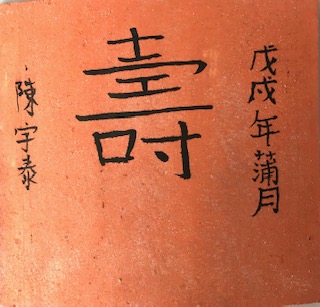 戊戌年蒲月
壽
陳宇泰